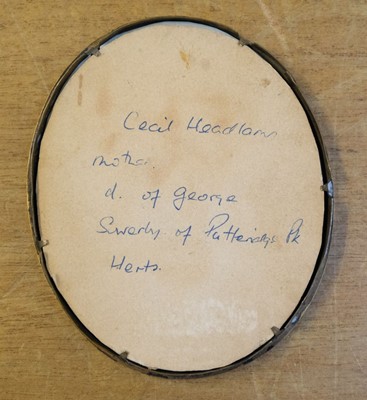 Cecil Headlam
mother.
d. of George
Sworly of Putteridge Pk
Herts.